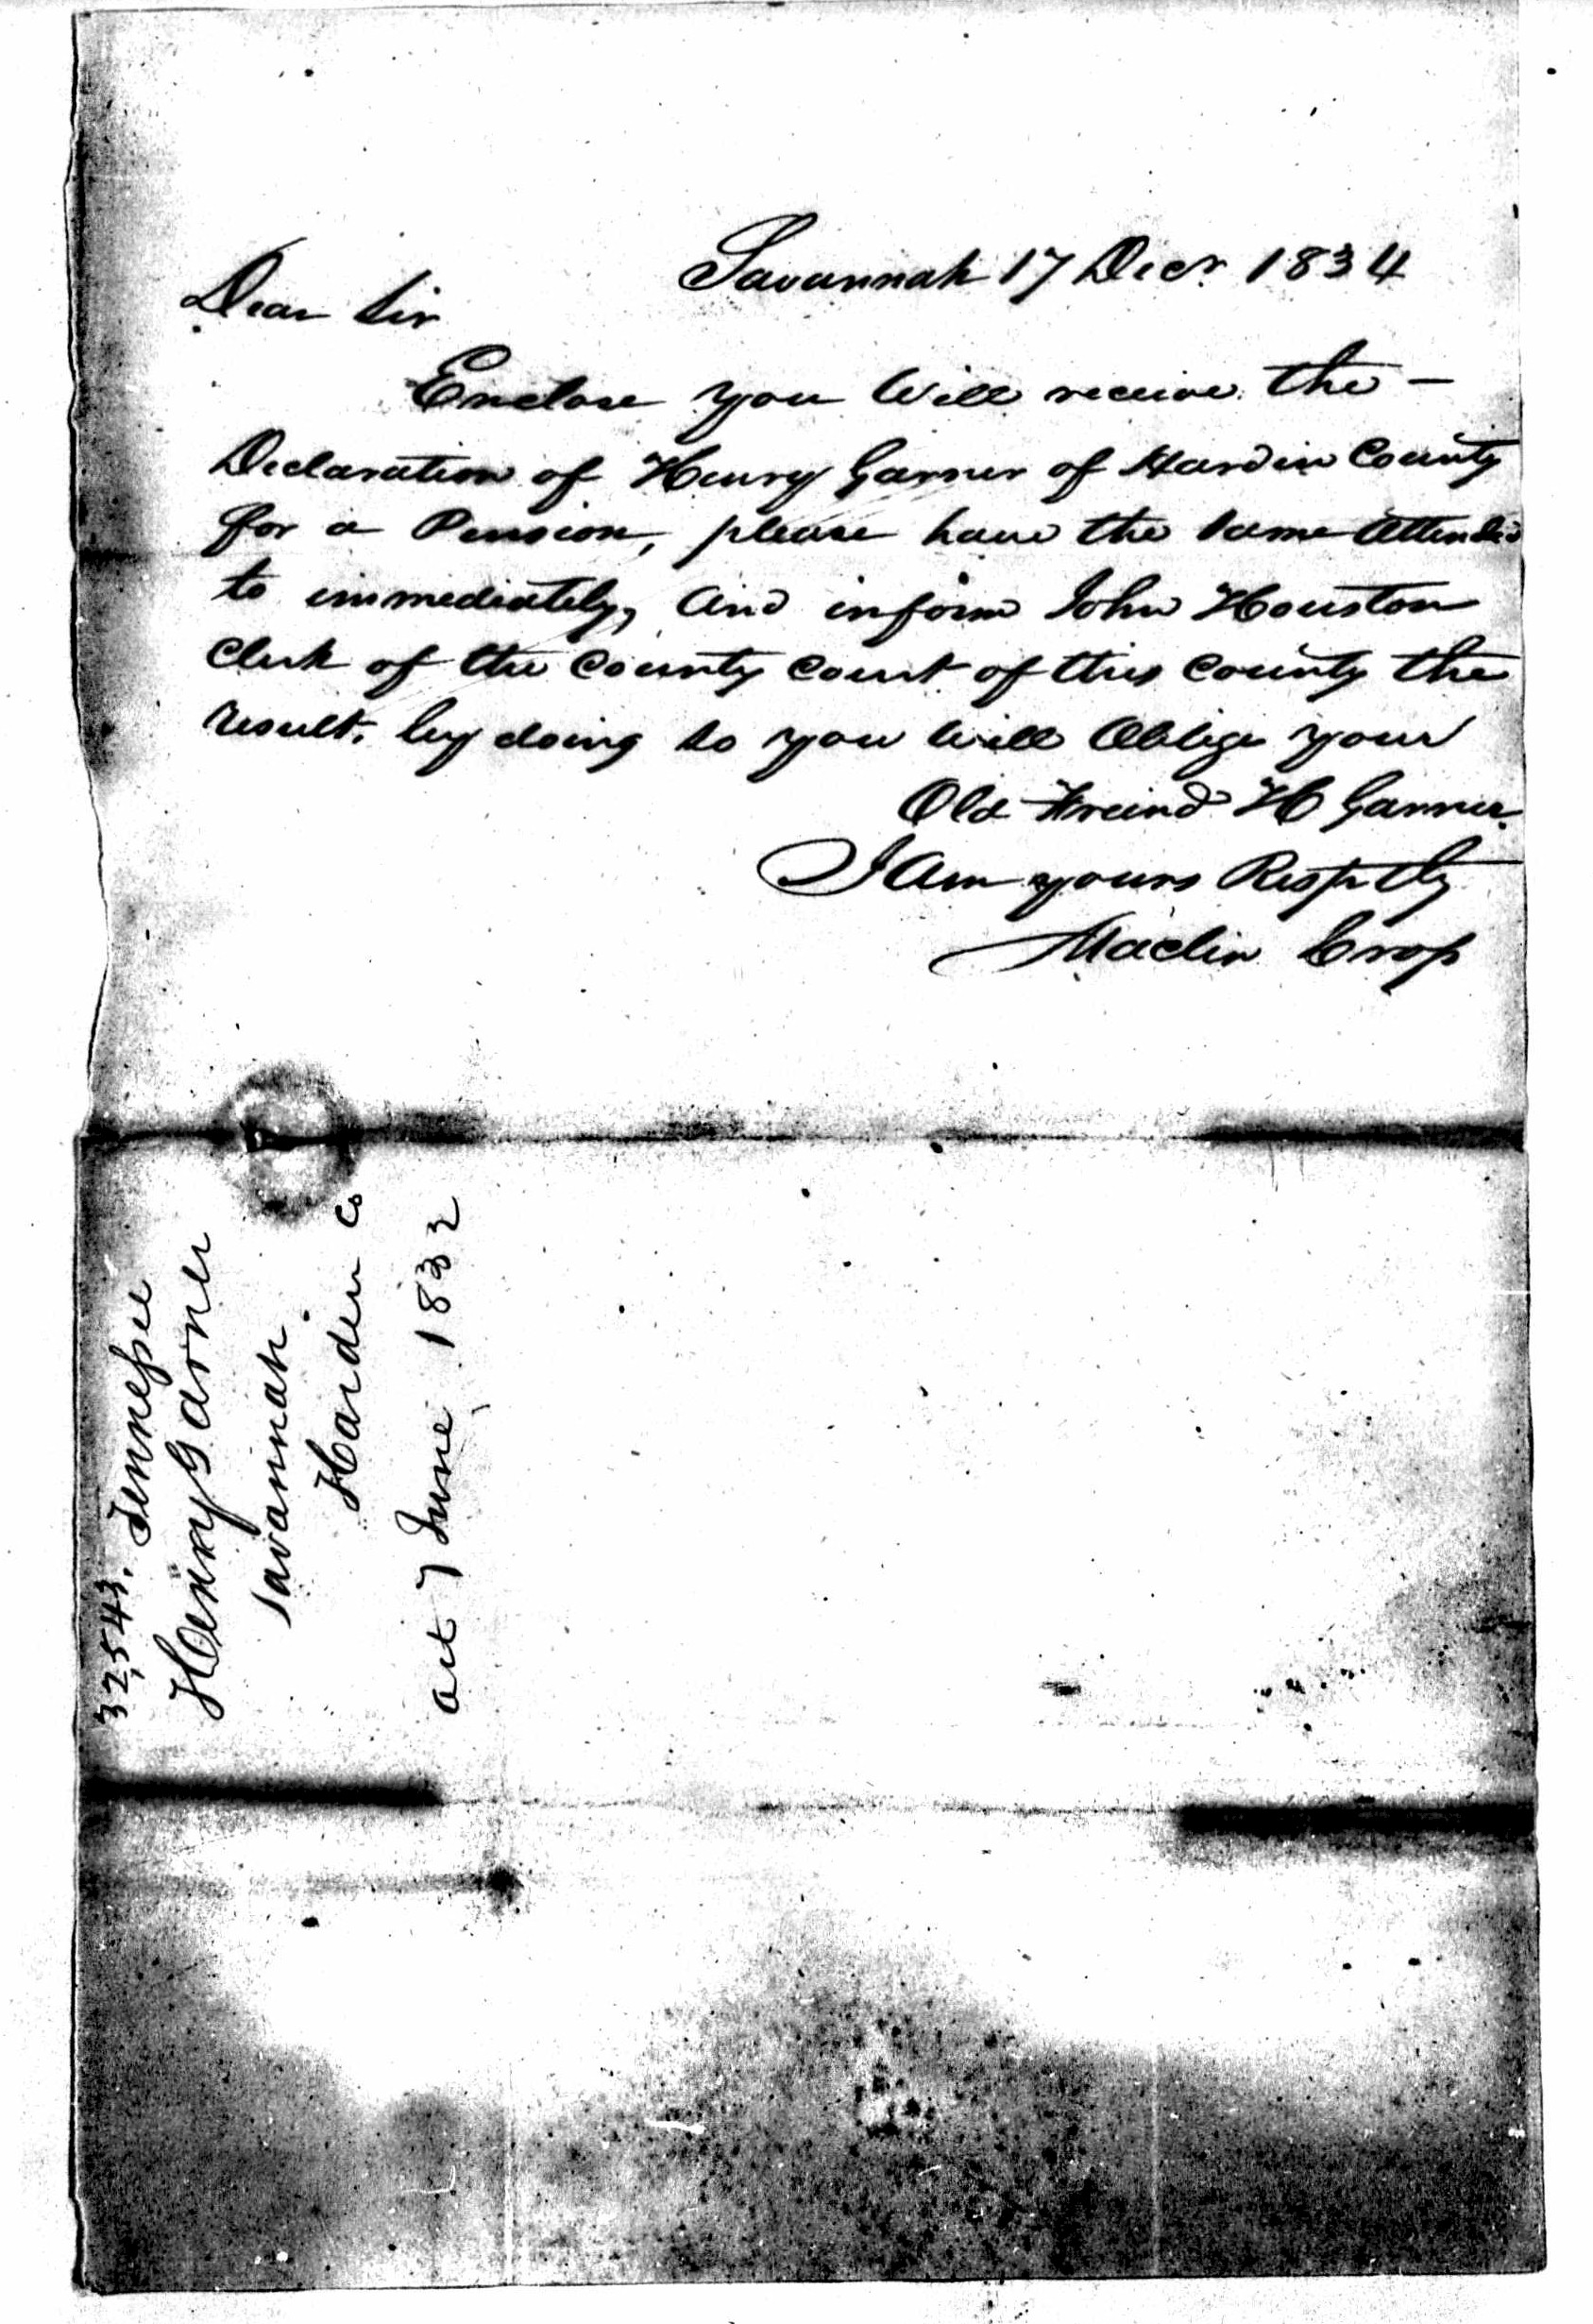 Savannah 17 Decr. 1834
Dear Sir
Enclose you will receive the —
Declaration of Henry Garner of Hardin County
for a Pension, please have the same attended
to immediately, and inform John Houston
Clerk of the County Court of this County the
result. by doing so you will Oblige your
Old Freind H Garner.
I am yours Respctly
Maclin Cross
32,543. Tennessee
Henry Garner
Savannah.
Harden Co
act 7 June 1832